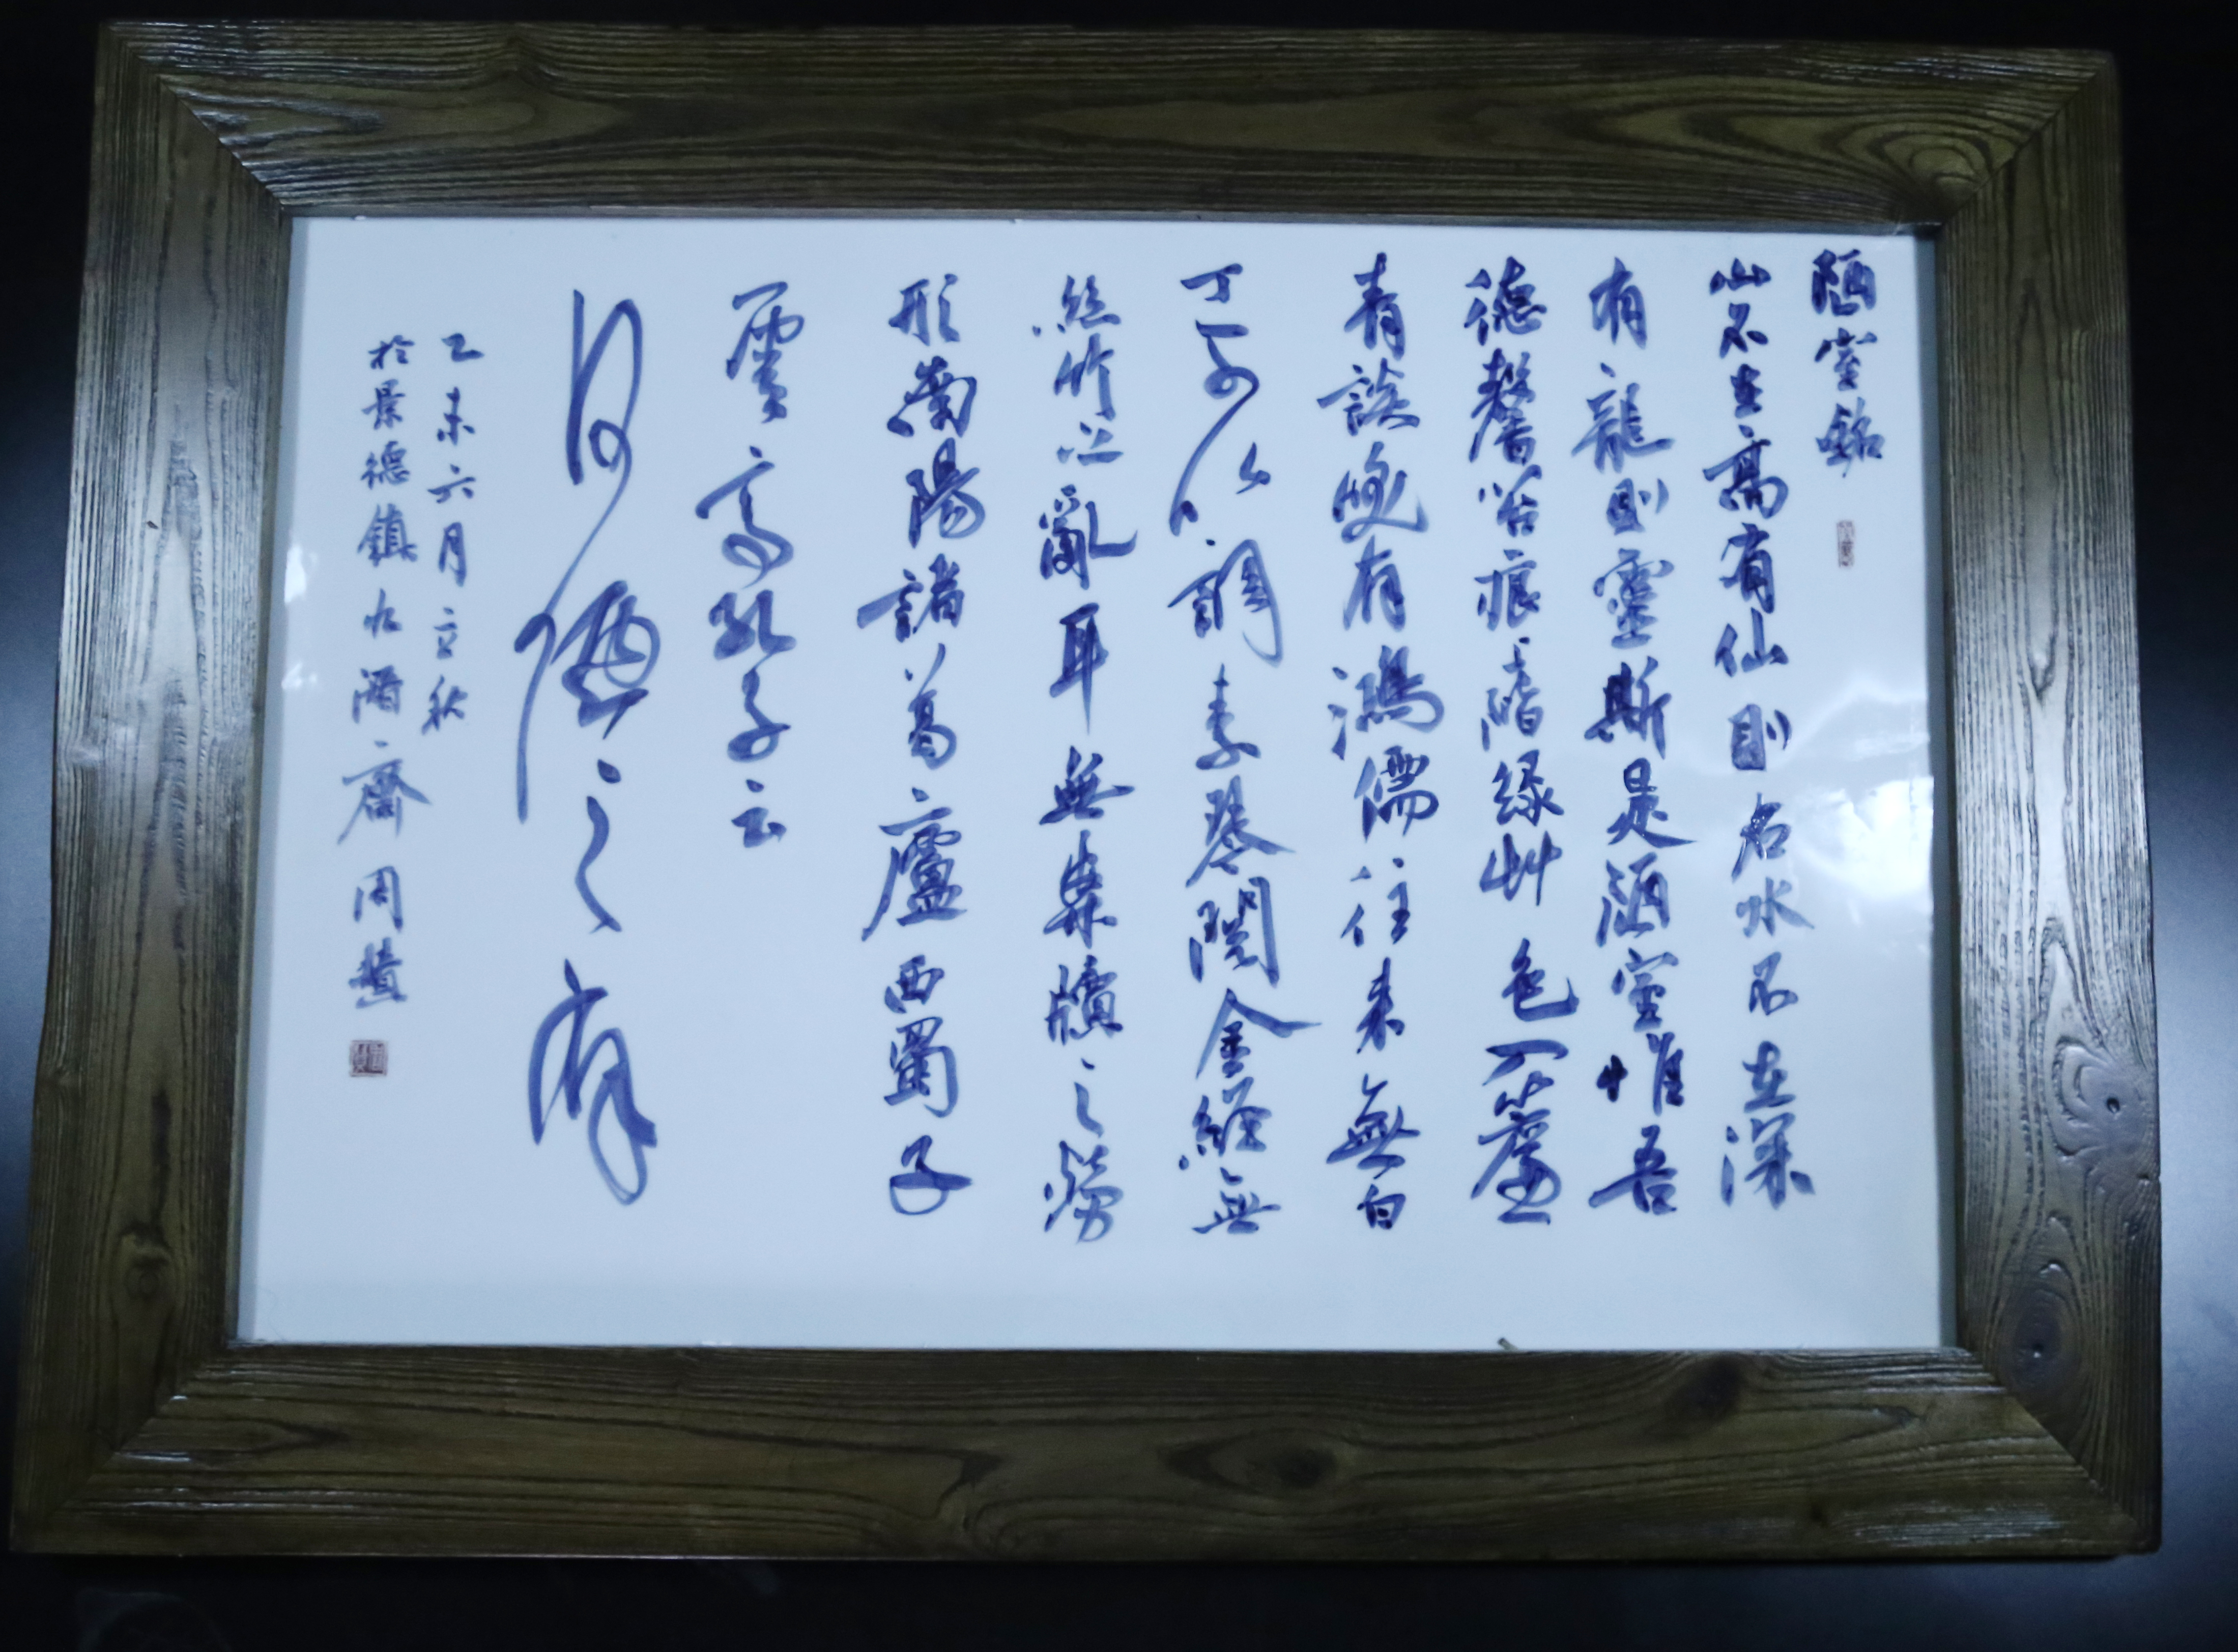 陋室銘
山不在高有仙則名水不在深
有龍則靈斯是陋室惟吾
德馨苔痕上階緑艸色入簾
青談笑有鴻儒往来無白
丁可以調素琴閱金經無
絲竹之亂耳無案牘之勞
形南陽諸葛廬西蜀子
雲亭孔子云
何陋之有
乙未六月立秋
於景德鎮九酒齋周